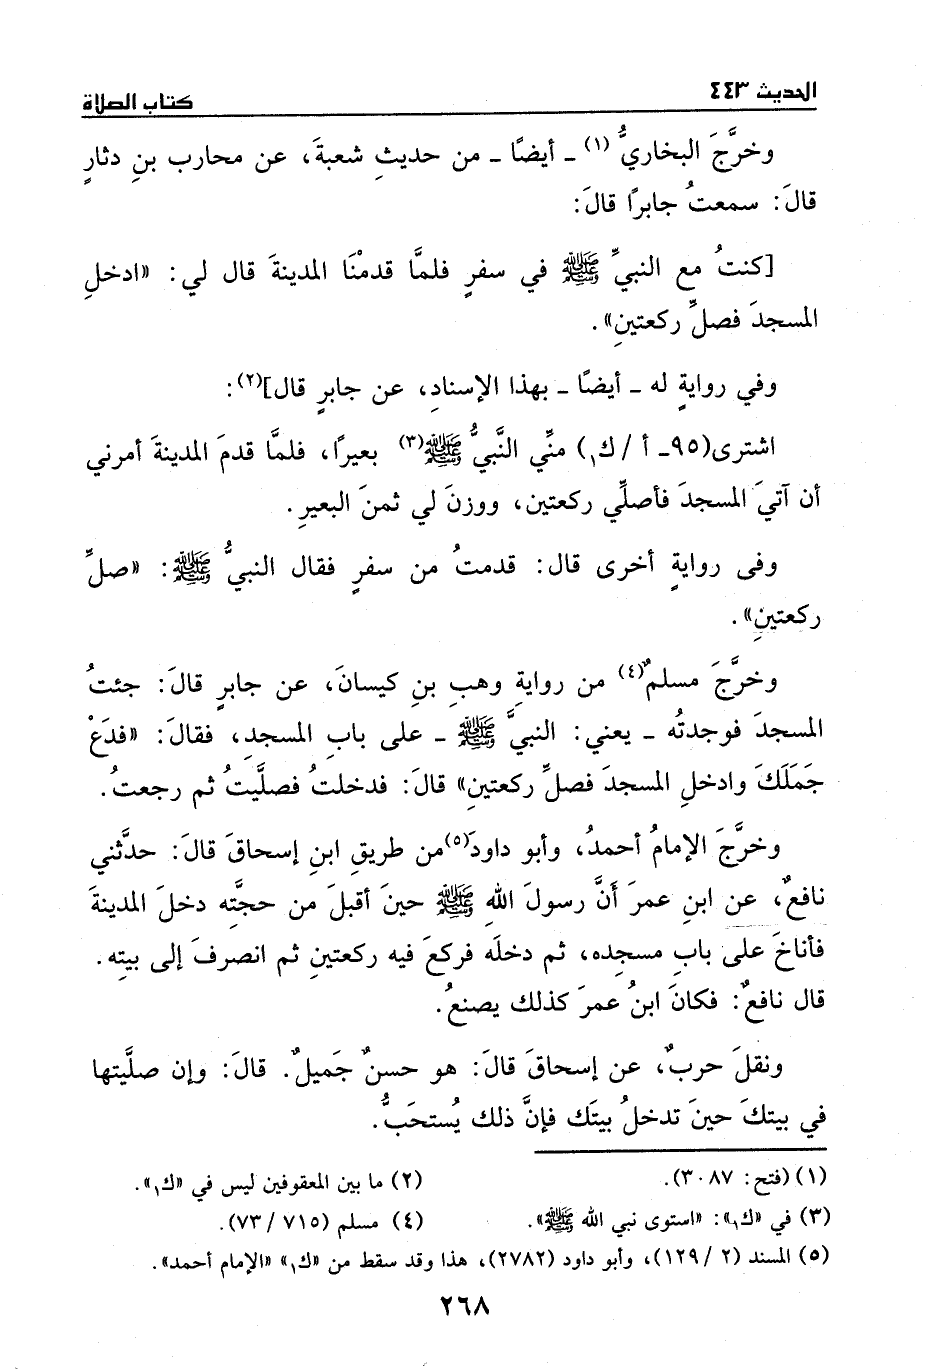 الحديث ٤٤٣
كتاب الصلاة
وخرَّجَ البخاريُّ (١) ـ أيضًا ـ من حديثِ شعبةَ، عن محارب بنِ دثارٍ
قالَ: سمعتُ جابرًا قالَ:
[كنتُ مع النبيِّ ﷺ في سفرٍ فلمَّا قدمْنَا المدينةَ قال لي: «ادخلِ
المسجدَ فصلِّ ركعتينِ».
وفي روايةٍ له ـ أيضًا ـ بهذا الإسنادِ، عن جابرٍ قال](٢):
اشترى(٩٥ـ أ / ك١) منِّي النَّبيُّ ﷺ(٣) بعيرًا، فلمَّا قدمَ المدينةَ أمرني
أن آتيَ المسجدَ فأصلِّي ركعتين، ووزنَ لي ثمنَ البعيرِ.
وفى روايةٍ أخرى قال: قدمتُ من سفرٍ فقال النبيُّ ﷺ: «صلِّ
ركعتينِ».
وخرَّجَ مسلمٌ(٤) من روايةِ وهبِ بنِ كيسانَ، عن جابرٍ قالَ: جئتُ
المسجدَ فوجدتُه ـ يعني: النبيَّ ﷺ ـ على بابِ المسجدِ، فقالَ: «فدَعْ
جَمَلَكَ وادخلِ المسجدَ فصلِّ ركعتينِ» قالَ: فدخلتُ فصلَّيتُ ثم رجعتُ.
وخرَّجَ الإمامُ أحمدُ، وأبو داودَ(٥)من طريقِ ابنِ إسحاقَ قالَ: حدَّثني
نافعٌ، عن ابنِ عمرَ أَنَّ رسولَ اللهِ ﷺ حينَ أقبلَ من حجَّته دخلَ المدينةَ
فأناخَ على بابِ مسجدِه، ثم دخلَه فركعَ فيه ركعتينِ ثم انصرفَ إلى بيتِه.
قال نافعٌ: فكانَ ابنُ عمرَ كذلك يصنعُ.
ونقلَ حربٌ، عن إسحاقَ قالَ: هو حسنٌ جَميلٌ. قالَ: وإن صلَّيتها
في بيتكَ حينَ تدخلُ بيتَك فإنَّ ذلك يُستحَبُّ.
(١) (فتح: ٣٠٨٧).
(٢) ما بين المعقوفين ليس في «ك١».
(٣) في «ك١»: «استوى نبي الله ﷺ».
(٤) مسلم (٧١٥ / ٧٣).
(٥) المسند (٢ / ١٢٩)، وأبو داود (٢٧٨٢)، هذا وقد سقط من «ك١» «الإمام أحمد».
٢٦٨